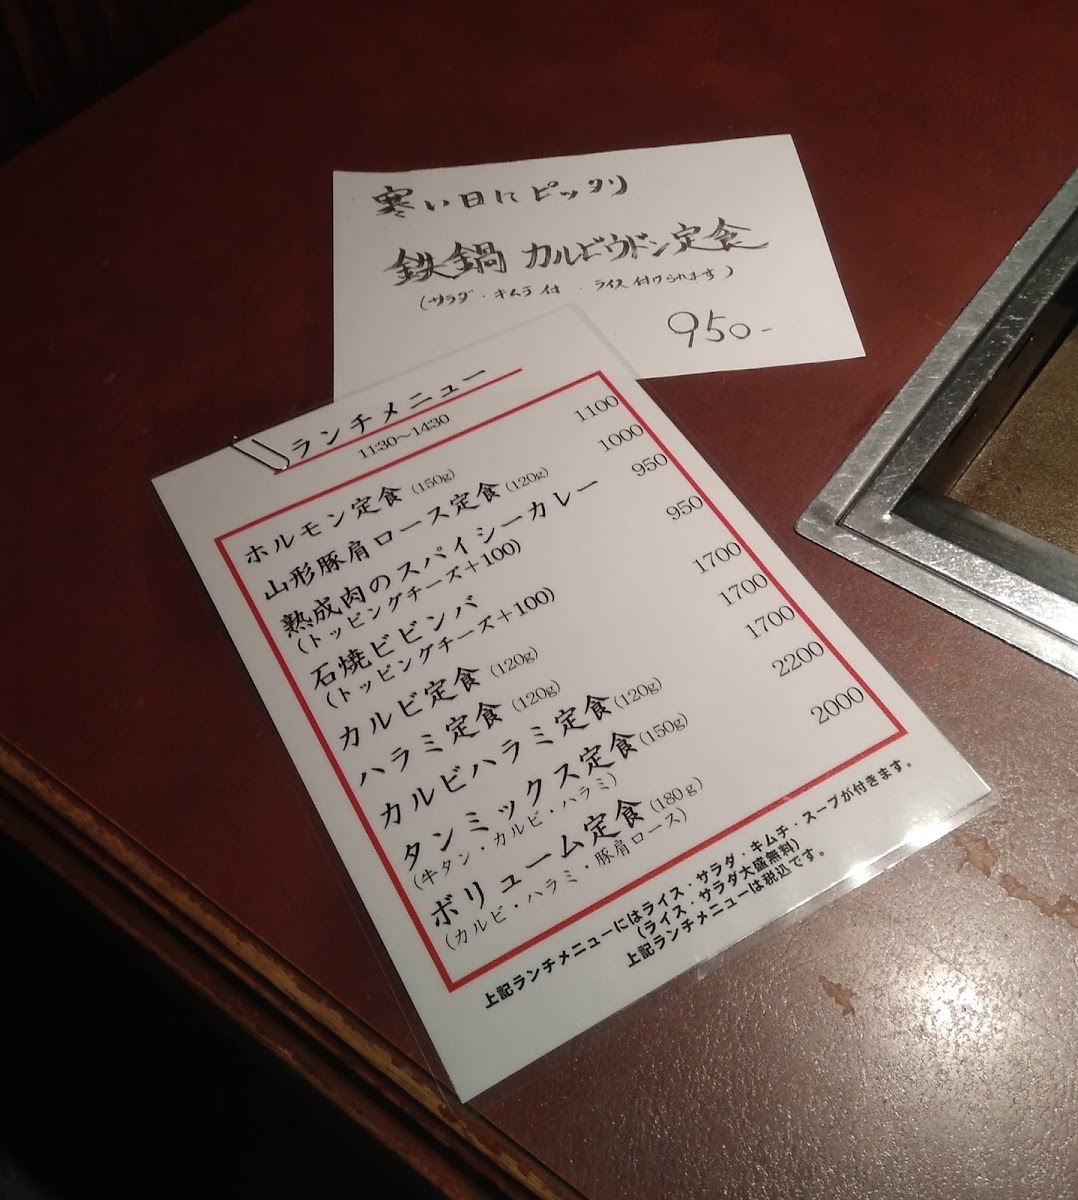 寒い日にピッタリ
鉄鍋 カルビウドン定食
(サラダ・キムチ付 ・ライス付けられます)
950-
ランチメニュー
11:30～14:30
ホルモン定食 (150g) 1100
山形豚肩ロース定食 (120g) 1000
熟成肉のスパイシーカレー 950
(トッピングチーズ＋100)
石焼ビビンバ 950
(トッピングチーズ＋100)
カルビ定食 (120g) 1700
ハラミ定食 (120g) 1700
カルビハラミ定食 (120g) 1700
タンミックス定食 (150g) 2200
(牛タン・カルビ・ハラミ)
ボリューム定食 (180ｇ) 2000
(カルビ・ハラミ・豚肩ロース)
上記ランチメニューにはライス・サラダ・キムチ・スープが付きます。
(ライス・サラダ大盛無料)
上記ランチメニューは税込です。